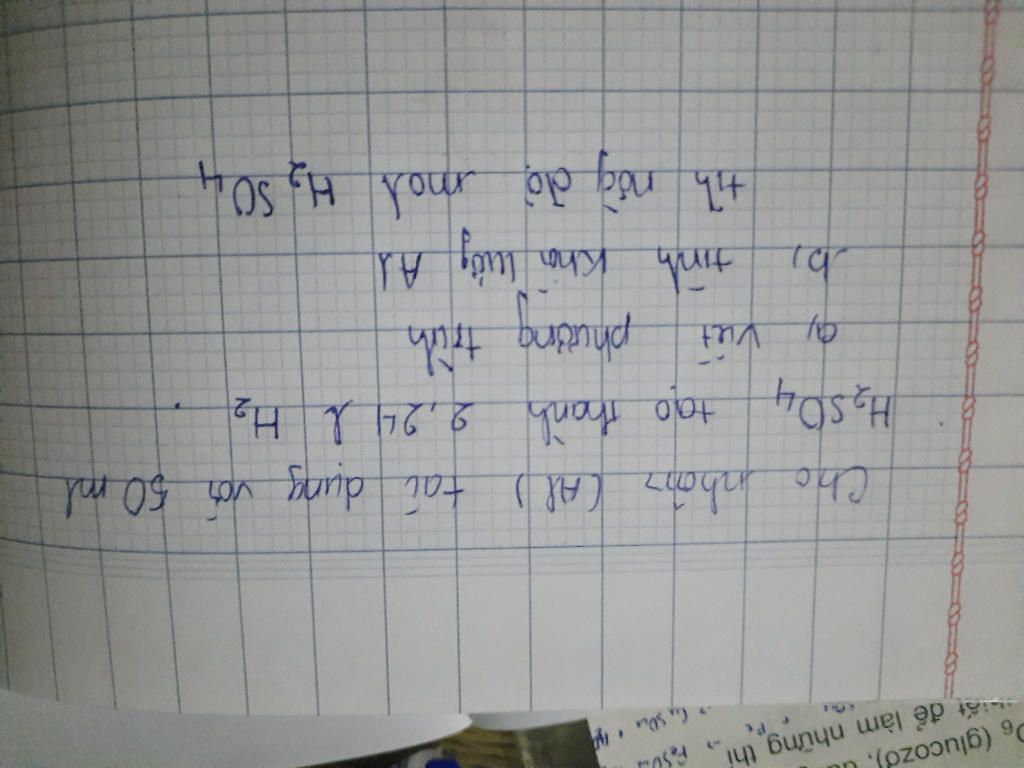 Cho nhôm (Al) tác dụng với 50 ml
H2SO4 tạo thành 2,24 l H2.
a, Viết phương trình
b, tính khối lượng Al
tíh nồg độ mol H2SO4
(glucozơ),
thiết để làm những thí